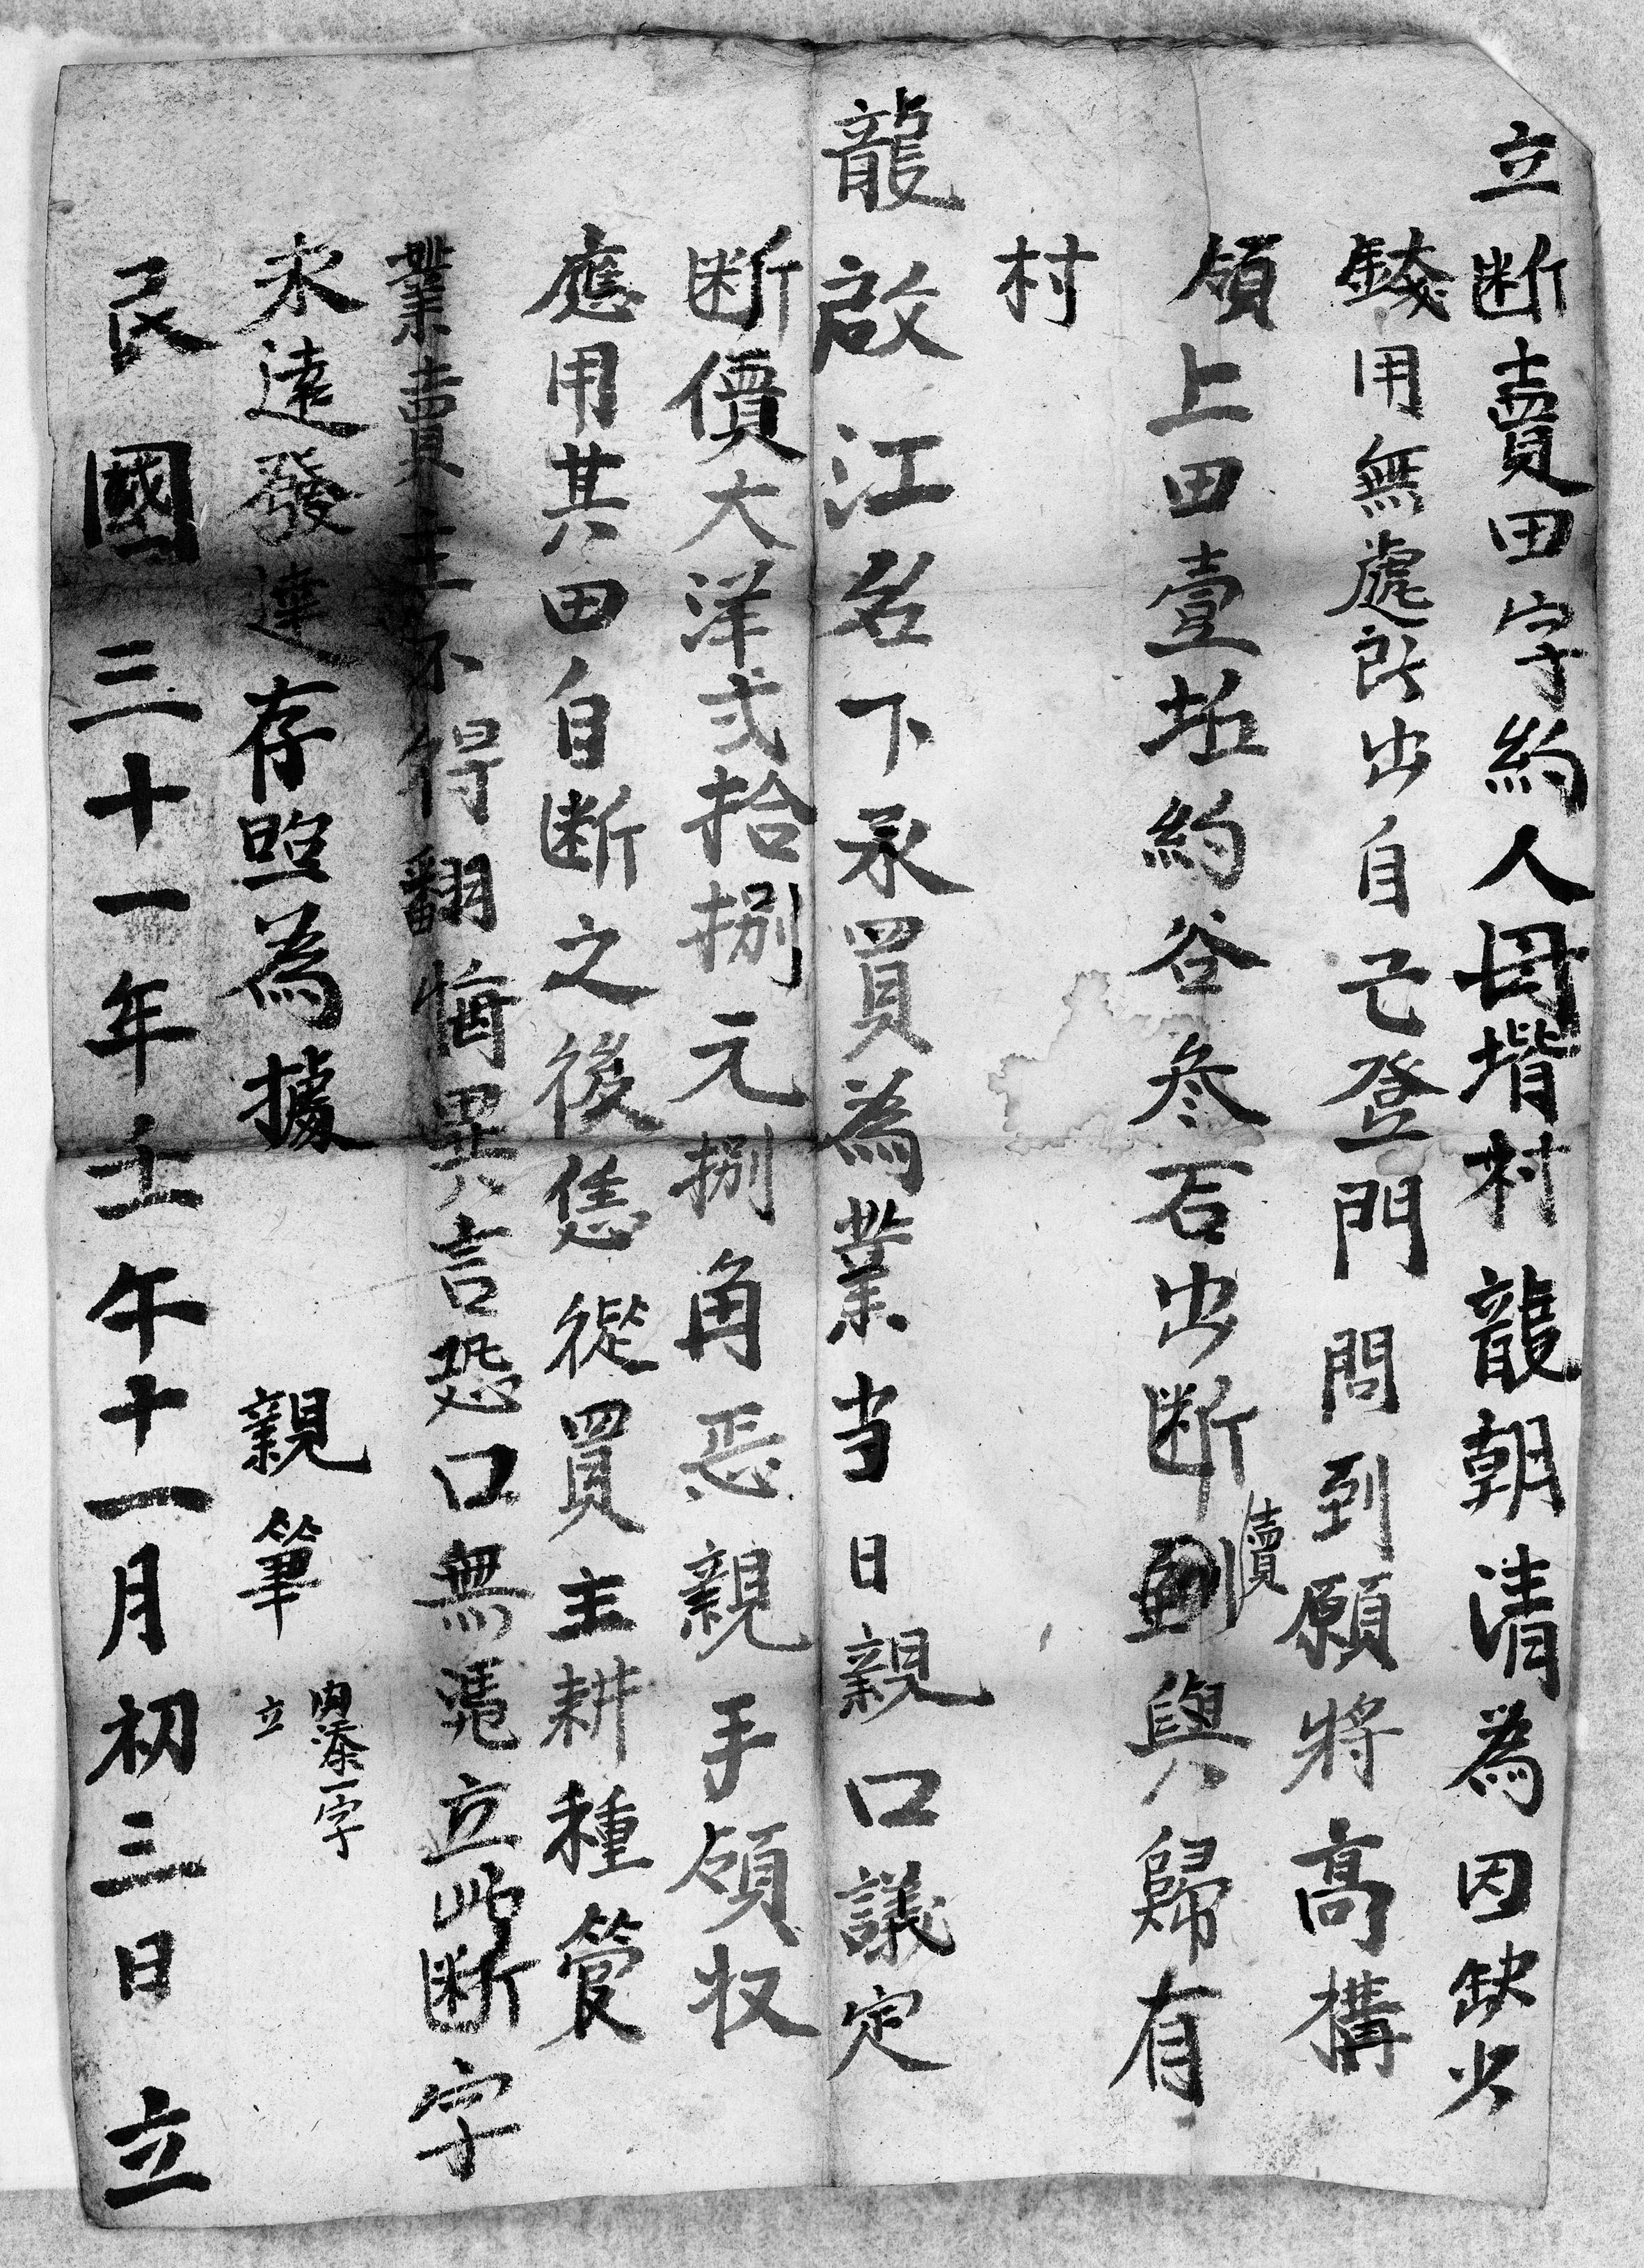 立断賣田字約人毌堦村龍朝清為因缺少
錢用無處所出自己登門問到願將高搆
領上田壹坵約谷叁石出断賣與歸有
村
龍啟江名下承買為業当日親口議定
断價大洋弍拾捌元捌角恶親手領収
應用其田自断之後恁從買主耕種管
業賣主不得翻悔異言恐口無憑立此断字
永遠發達存照為據
親筆
内添一字
立
民國三十一年壬午十一月初三日立